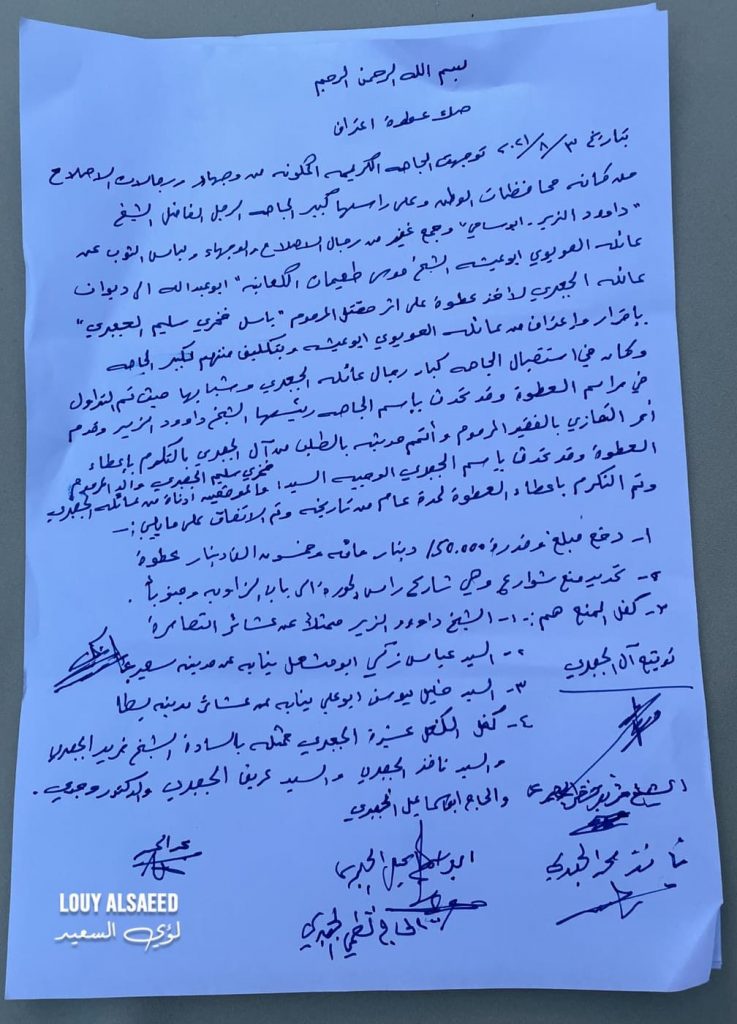 بسم الله الرحمن الرحيم
صك عطوة اعتراف
بتاريخ ٢٠٢١/٨/٣ توجهت الجاهه الكريمه المكونه من وجهاء ورجالات الاصلاح
من كافه محافظات الوطن وعلى راسها كبير الجاهه الرجل الفاضل الشيخ
"داوود الزير - ابو سامي" وجمع غفير من رجال الاصلاح والوجهاء ولباس الثوب عن
عائله العويوي ابوعيشه الشيخ موسى طعيمات الكعابنه "ابوعبدالله" الى ديوان
عائله الجعبري لأخذ عطوة على اثر مقتل المرحوم "باسل فخري سليم الجعبري"
بإقرار واعتراف من عائله العويوي ابوعيشه وبتكليف منهم لكبير الجاهه
وكان في استقبال الجاهه كبار رجال عائله الجعبري وشبابها حيث تم التداول
في مراسم العطوة وقد تحدث بإسم الجاهه رئيسها الشيخ داوود الزير وقدم
أحر التعازي بالفقيد المرحوم وأتم حديثه بالطلب من آل الجعبري بالتكرم بإعطاء
العطوة وقد تحدث بإسم الجعبري الوجيه السيد فخري سليم الجعبري والد المرحوم
وتم التكرم باعطاء العطوة لمدة عام من تاريخه وتم الاتفاق على مايلي :-
والموقعين ادناه من عائله الجعبري
١- دفع مبلغ وقدرة ١٥٠.٠٠٠ دينار مائه وخمسون الف دينار عطوة
٢- تحديد منع شوارع وهي شارع راس الجورة الى باب الزاويه وجنوباً .
٣- كفل المنع هم :- ١- الشيخ داوود الزير ممثلاً عن عشائر التعامرة
٢- السيد عباس زكي ابومشعل نيابه عن مدينه سعير
توقيع آل الجعبري
٣- السيد خليل يونس ابوعلي نيابه عن عشائر مدينه يطا
٤- كفل الكفل عشيرة الجعبري ممثله بالسادة الشيخ فريد الجعبري
والسيد نافذ الجعبري والسيد عريف الجعبري والدكتور وجدي .
والحاج ابو اسماعيل الجعبري
الشيخ فريد خضر الجعبري
نافذ الجعبري
الحاج نظمي الجعبري
LOUY ALSAEED
لؤي السعيد